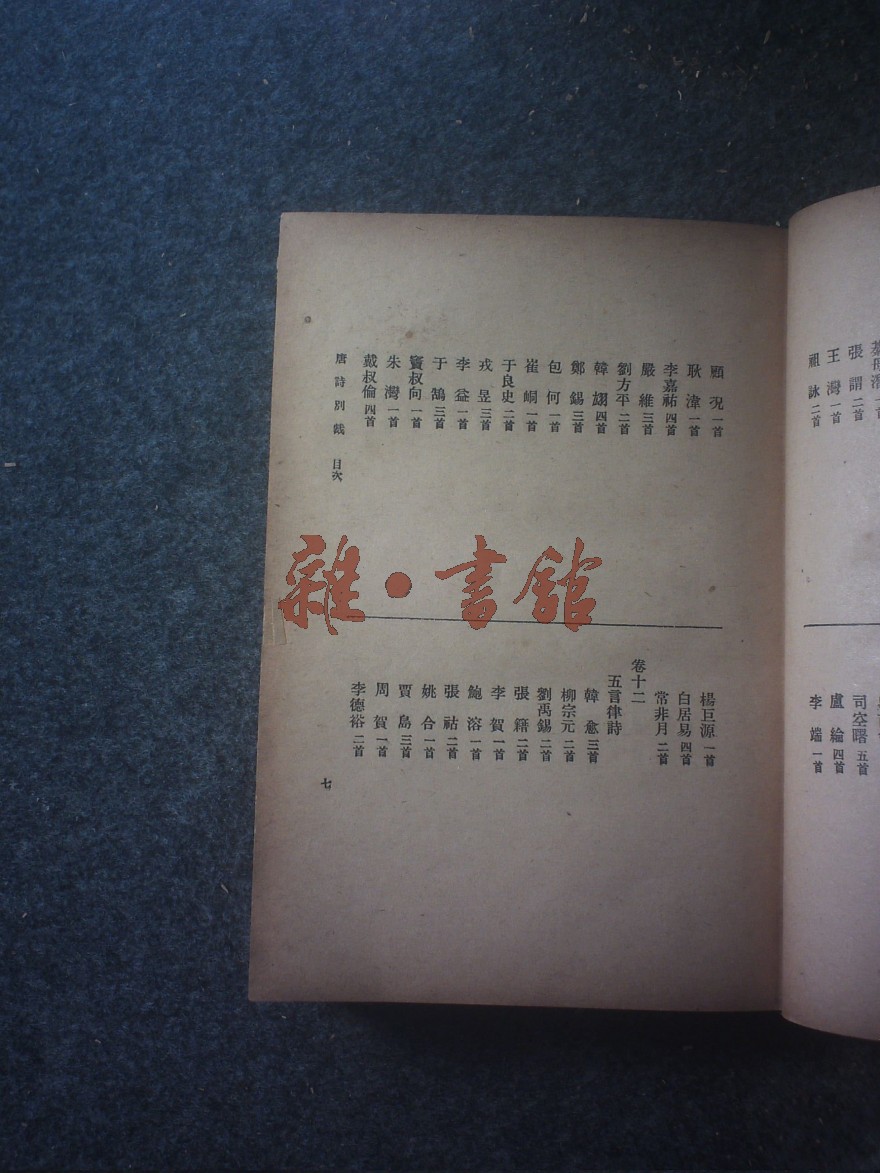 張謂 二首
王灣 一首
祖詠 二首
司空曙 五首
盧綸 四首
李端 一首
顧況 一首
耿湋 一首
李嘉祐 四首
嚴維 三首
劉方平 二首
韓翃 四首
鄭錫 三首
包何 一首
崔峒 一首
于良史 二首
戎昱 三首
李益 一首
于鵠 三首
竇叔向 一首
朱灣 一首
戴叔倫 四首
唐詩別裁 目次
楊巨源 一首
白居易 四首
常非月 二首
卷十二
五言律詩
韓愈 三首
柳宗元 二首
劉禹錫 二首
張籍 二首
李賀 一首
鮑溶 一首
張祜 二首
姚合 一首
賈島 三首
周賀 一首
李德裕 二首
七
雜·書館